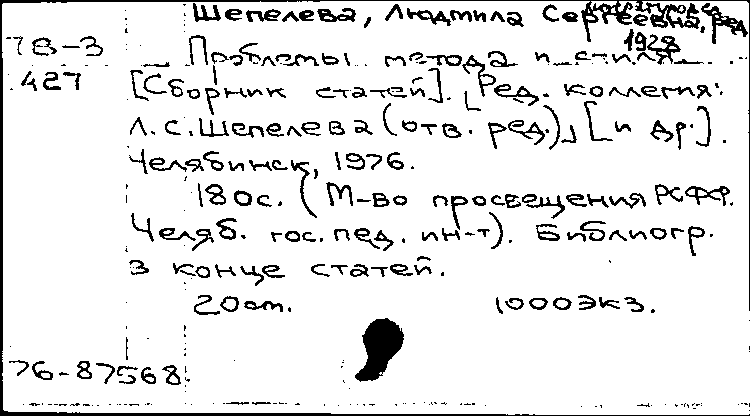 Шепелева, Людмила Сергеевна, ред.
литературовед
1928
78-3 Проблемы метода и стиля.
427 [Сборник статей]. Ред. коллегия:
Л.С.Шепелева (отв. ред.), [и др.].
Челябинск, 1976.
180с. (М-во просвещения РСФСР.
Челяб. гос. пед. ин-т). Библиогр.
в конце статей.
20от. 1000экз.
76-87568